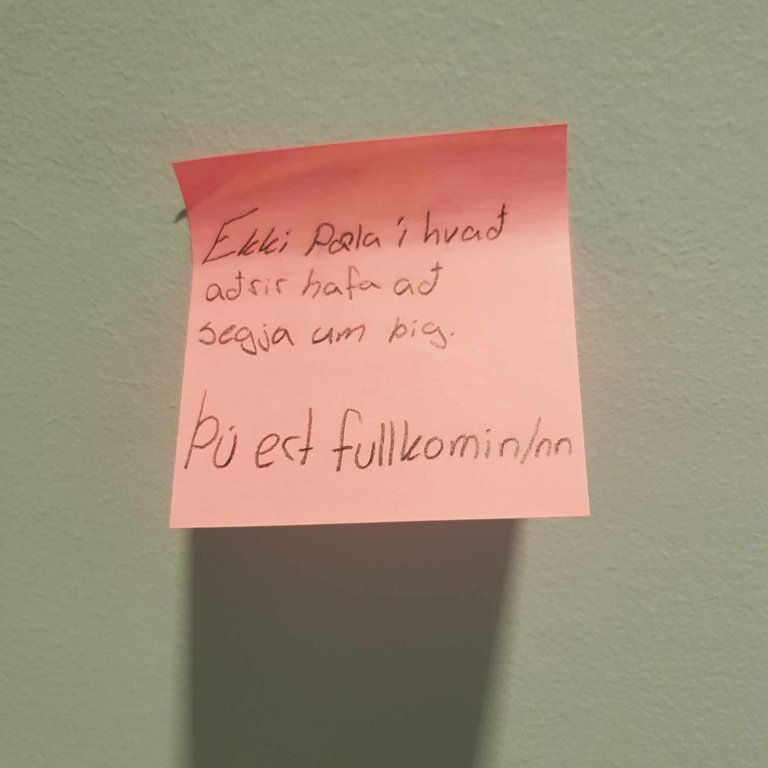 Ekki pæla í hvað
aðrir hafa að
segja um þig.
Þú ert fullkomin/nn